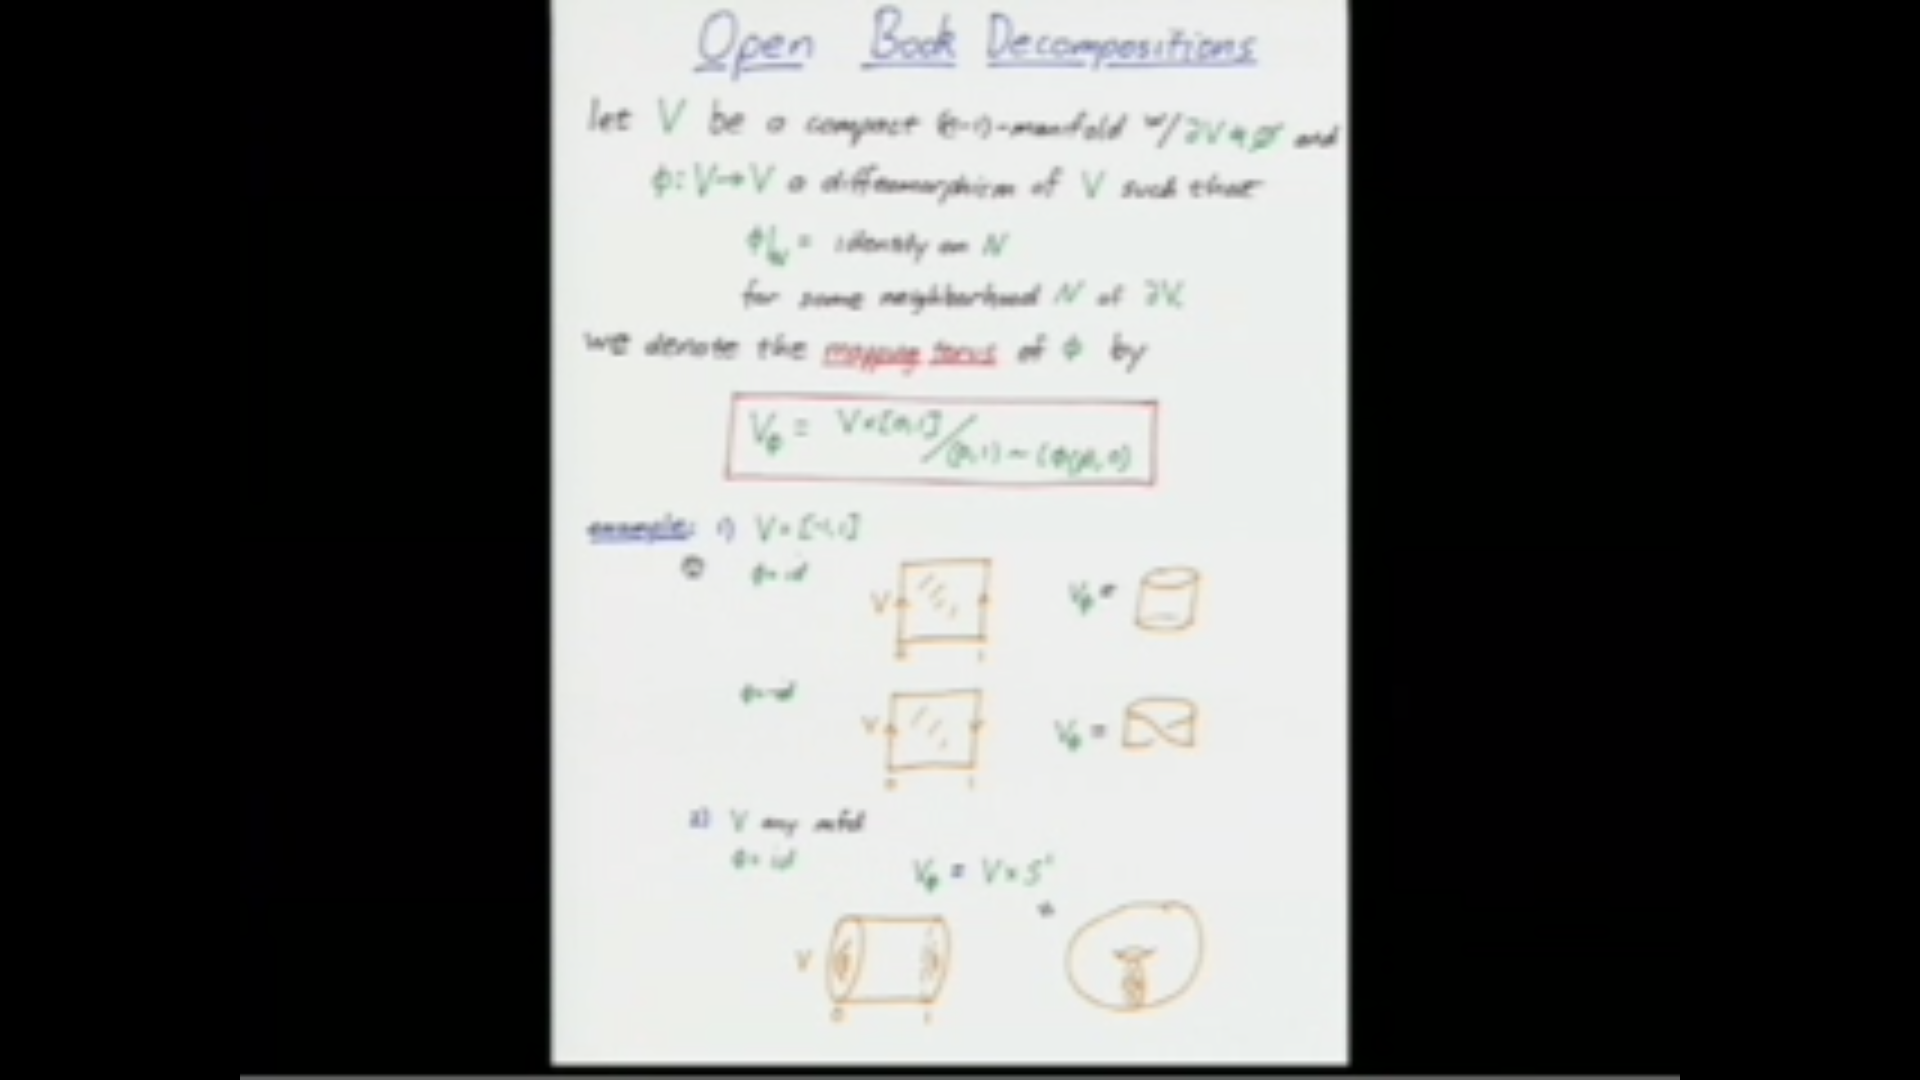 Open Book Decompositions
let V be a compact (n-1)-manifold w/ ∂V ≠ ∅ and
ϕ: V → V a diffeomorphism of V such that
ϕ|_N = identity on N
for some neighborhood N of ∂V.
we denote the mapping torus of ϕ by
V_ϕ = V×[0,1] / (p,1) ~ (ϕ(p),0)
example: 1) V = [-1,1]
ϕ = id
V
V_ϕ =
0 1
ϕ = -id
V
V_ϕ =
0 1
2) V any mfd
ϕ = id
V_ϕ = V × S¹
V
0 1